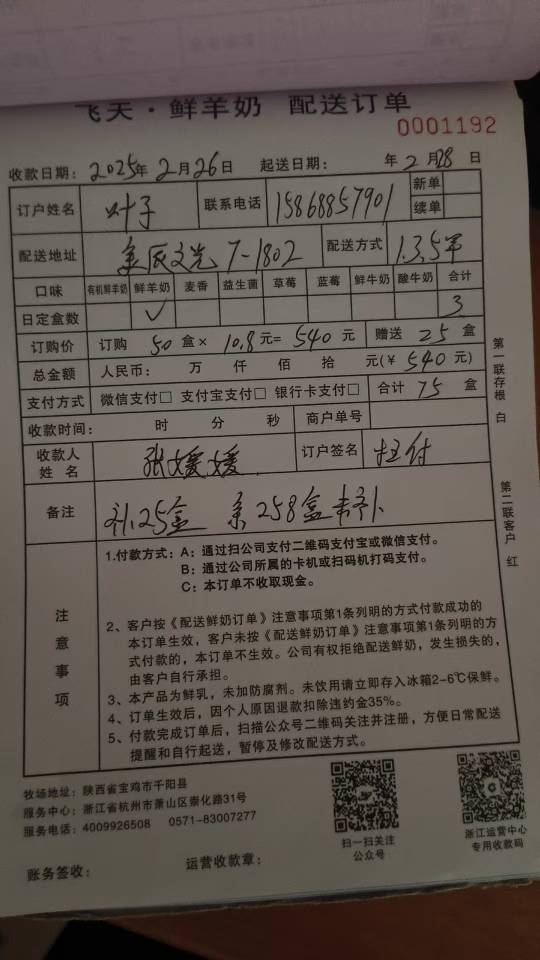 飞天·鲜羊奶 配送订单
0001192
收款日期：2025年2月26日 起送日期： 年2月28日
订户姓名 叶子 联系电话 15868857901 新单
续单
配送地址 美辰文苑7-1802 配送方式 1.3.5单
口味 有机鲜羊奶 鲜羊奶 麦香 益生菌 草莓 蓝莓 鲜牛奶 酸牛奶 合计
日定盒数 ✓ 3
订购价 订购 50 盒× 10.8元= 540 元 赠送 25 盒
总金额 人民币： 万 仟 佰 拾 元(￥ 540 元)
支付方式 微信支付□ 支付宝支付□ 银行卡支付□ 合计 75 盒
收款时间： 时 分 秒 商户单号
收款人
姓 名 张媛媛 订户签名 扫付
备注 补25盒 余258盒未补
第一联存根 白
第二联客户 红
注意事项
1.付款方式：A：通过扫公司支付二维码支付宝或微信支付。
B：通过公司所属的卡机或扫码机打码支付。
C：本订单不收取现金。
2、客户按《配送鲜奶订单》注意事项第1条列明的方式付款成功的
本订单生效，客户未按《配送鲜奶订单》注意事项第1条列明的方
式付款的，本订单不生效。公司有权拒绝配送鲜奶，发生损失的，
由客户自行承担。
3、本产品为鲜乳，未加防腐剂。未饮用请立即存入冰箱2-6℃保鲜。
4、订单生效后，因个人原因退款扣除违约金35%。
5、付款完成订单后，扫描公众号二维码关注并注册，方便日常配送
提醒和自行起送，暂停及修改配送方式。
牧场地址：陕西省宝鸡市千阳县
服务中心：浙江省杭州市萧山区崇化路31号
服务电话：4009926508 0571-83007277
扫一扫关注
公众号
浙江运营中心
专用收款码
账务签收： 运营收款章：